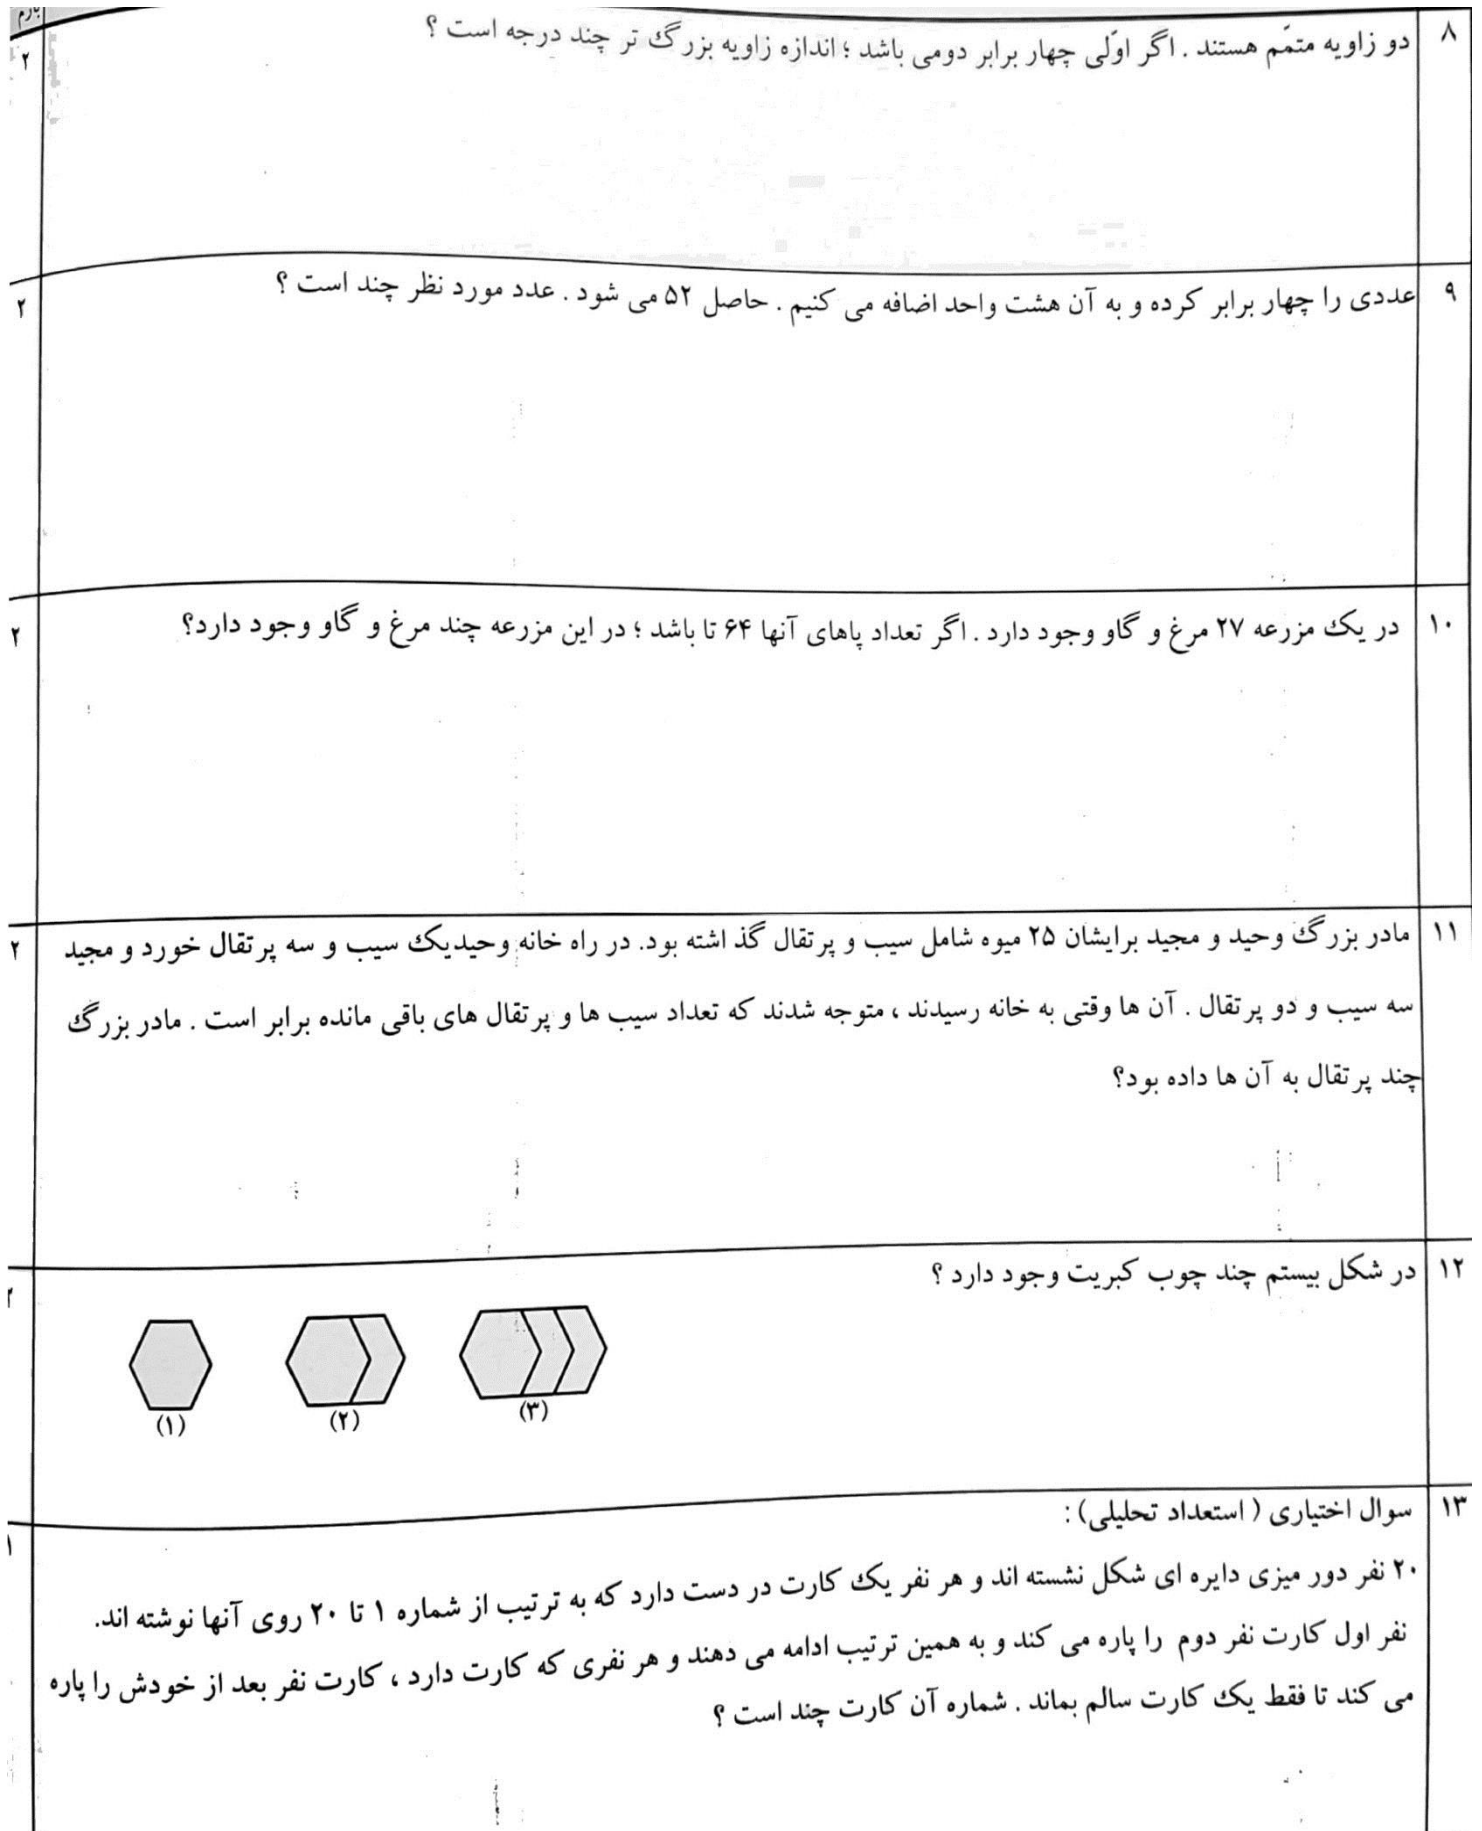 بارم
۸ دو زاویه متمّم هستند . اگر اوّلی چهار برابر دومی باشد ؛ اندازه زاویه بزرگ تر چند درجه است ؟ ۲
۹ عددی را چهار برابر کرده و به آن هشت واحد اضافه می کنیم . حاصل ۵۲ می شود . عدد مورد نظر چند است ؟ ۲
۱۰ در یک مزرعه ۲۷ مرغ و گاو وجود دارد . اگر تعداد پاهای آنها ۶۴ تا باشد ؛ در این مزرعه چند مرغ و گاو وجود دارد؟ ۲
۱۱ مادر بزرگ وحید و مجید برایشان ۲۵ میوه شامل سیب و پرتقال گذاشته بود. در راه خانه وحیدیک سیب و سه پرتقال خورد و مجید ۲
سه سیب و دو پرتقال . آن ها وقتی به خانه رسیدند ، متوجه شدند که تعداد سیب ها و پرتقال های باقی مانده برابر است . مادر بزرگ
چند پرتقال به آن ها داده بود؟
۱۲ در شکل بیستم چند چوب کبریت وجود دارد ؟ ۲
(۱) (۲) (۳)
۱۳ سوال اختیاری ( استعداد تحلیلی) : ۱
۲۰ نفر دور میزی دایره ای شکل نشسته اند و هر نفر یک کارت در دست دارد که به ترتیب از شماره ۱ تا ۲۰ روی آنها نوشته اند.
نفر اول کارت نفر دوم را پاره می کند و به همین ترتیب ادامه می دهند و هر نفری که کارت دارد ، کارت نفر بعد از خودش را پاره
می کند تا فقط یک کارت سالم بماند . شماره آن کارت چند است ؟